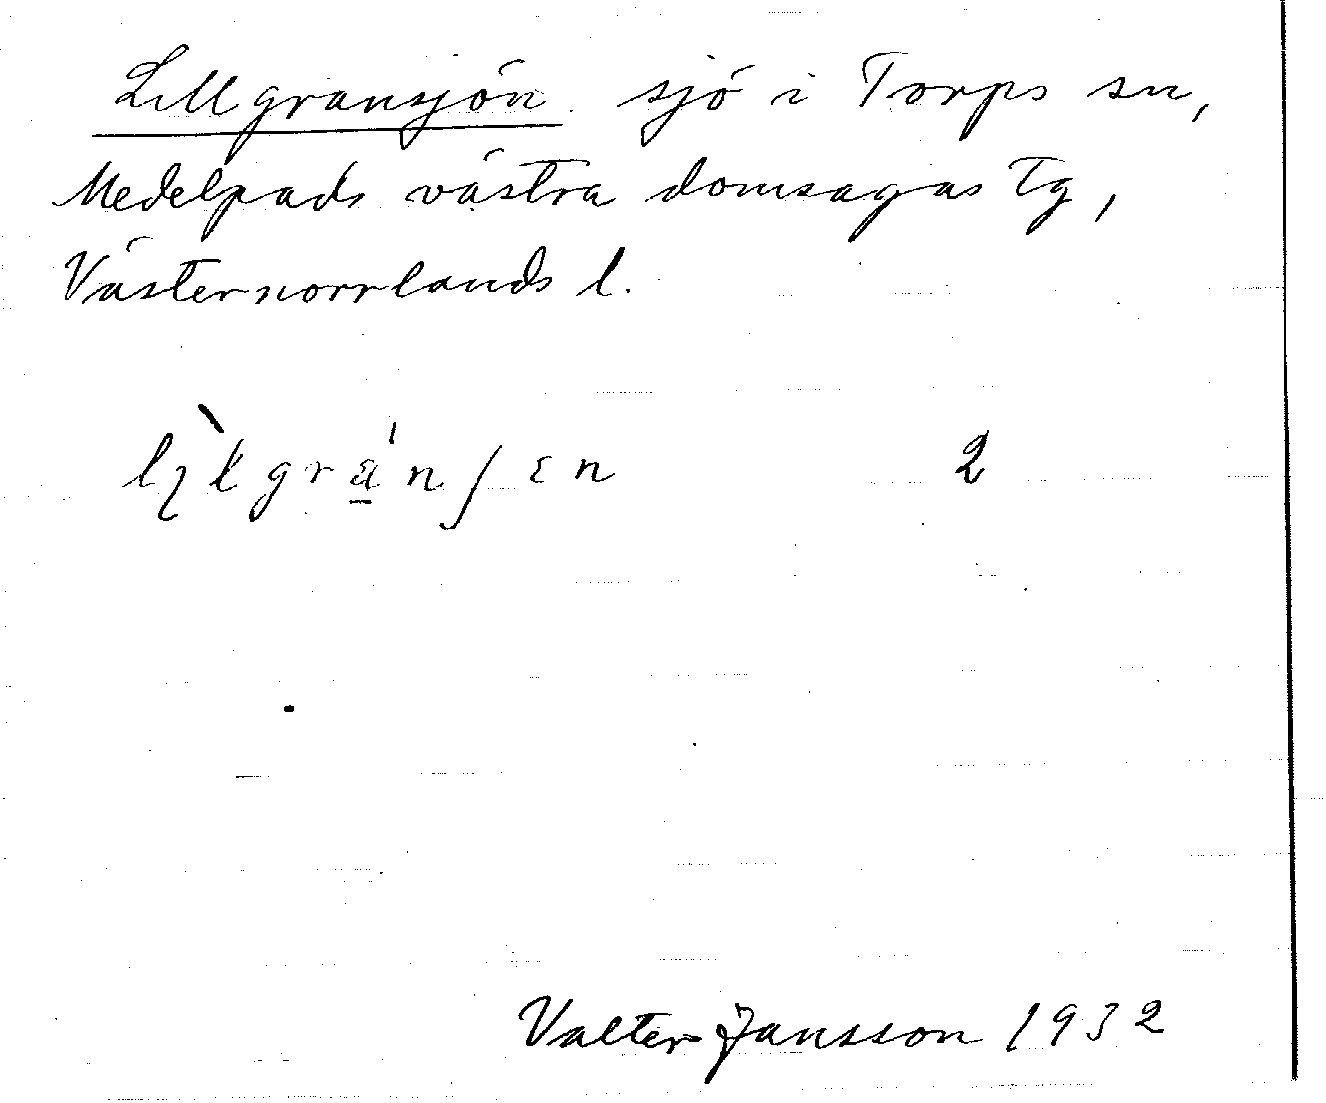 Lillgransjön sjö i Torps sn,
Medelpads västra domsagas tg,
Västernorrlands l.
2
Valter Jansson 1932